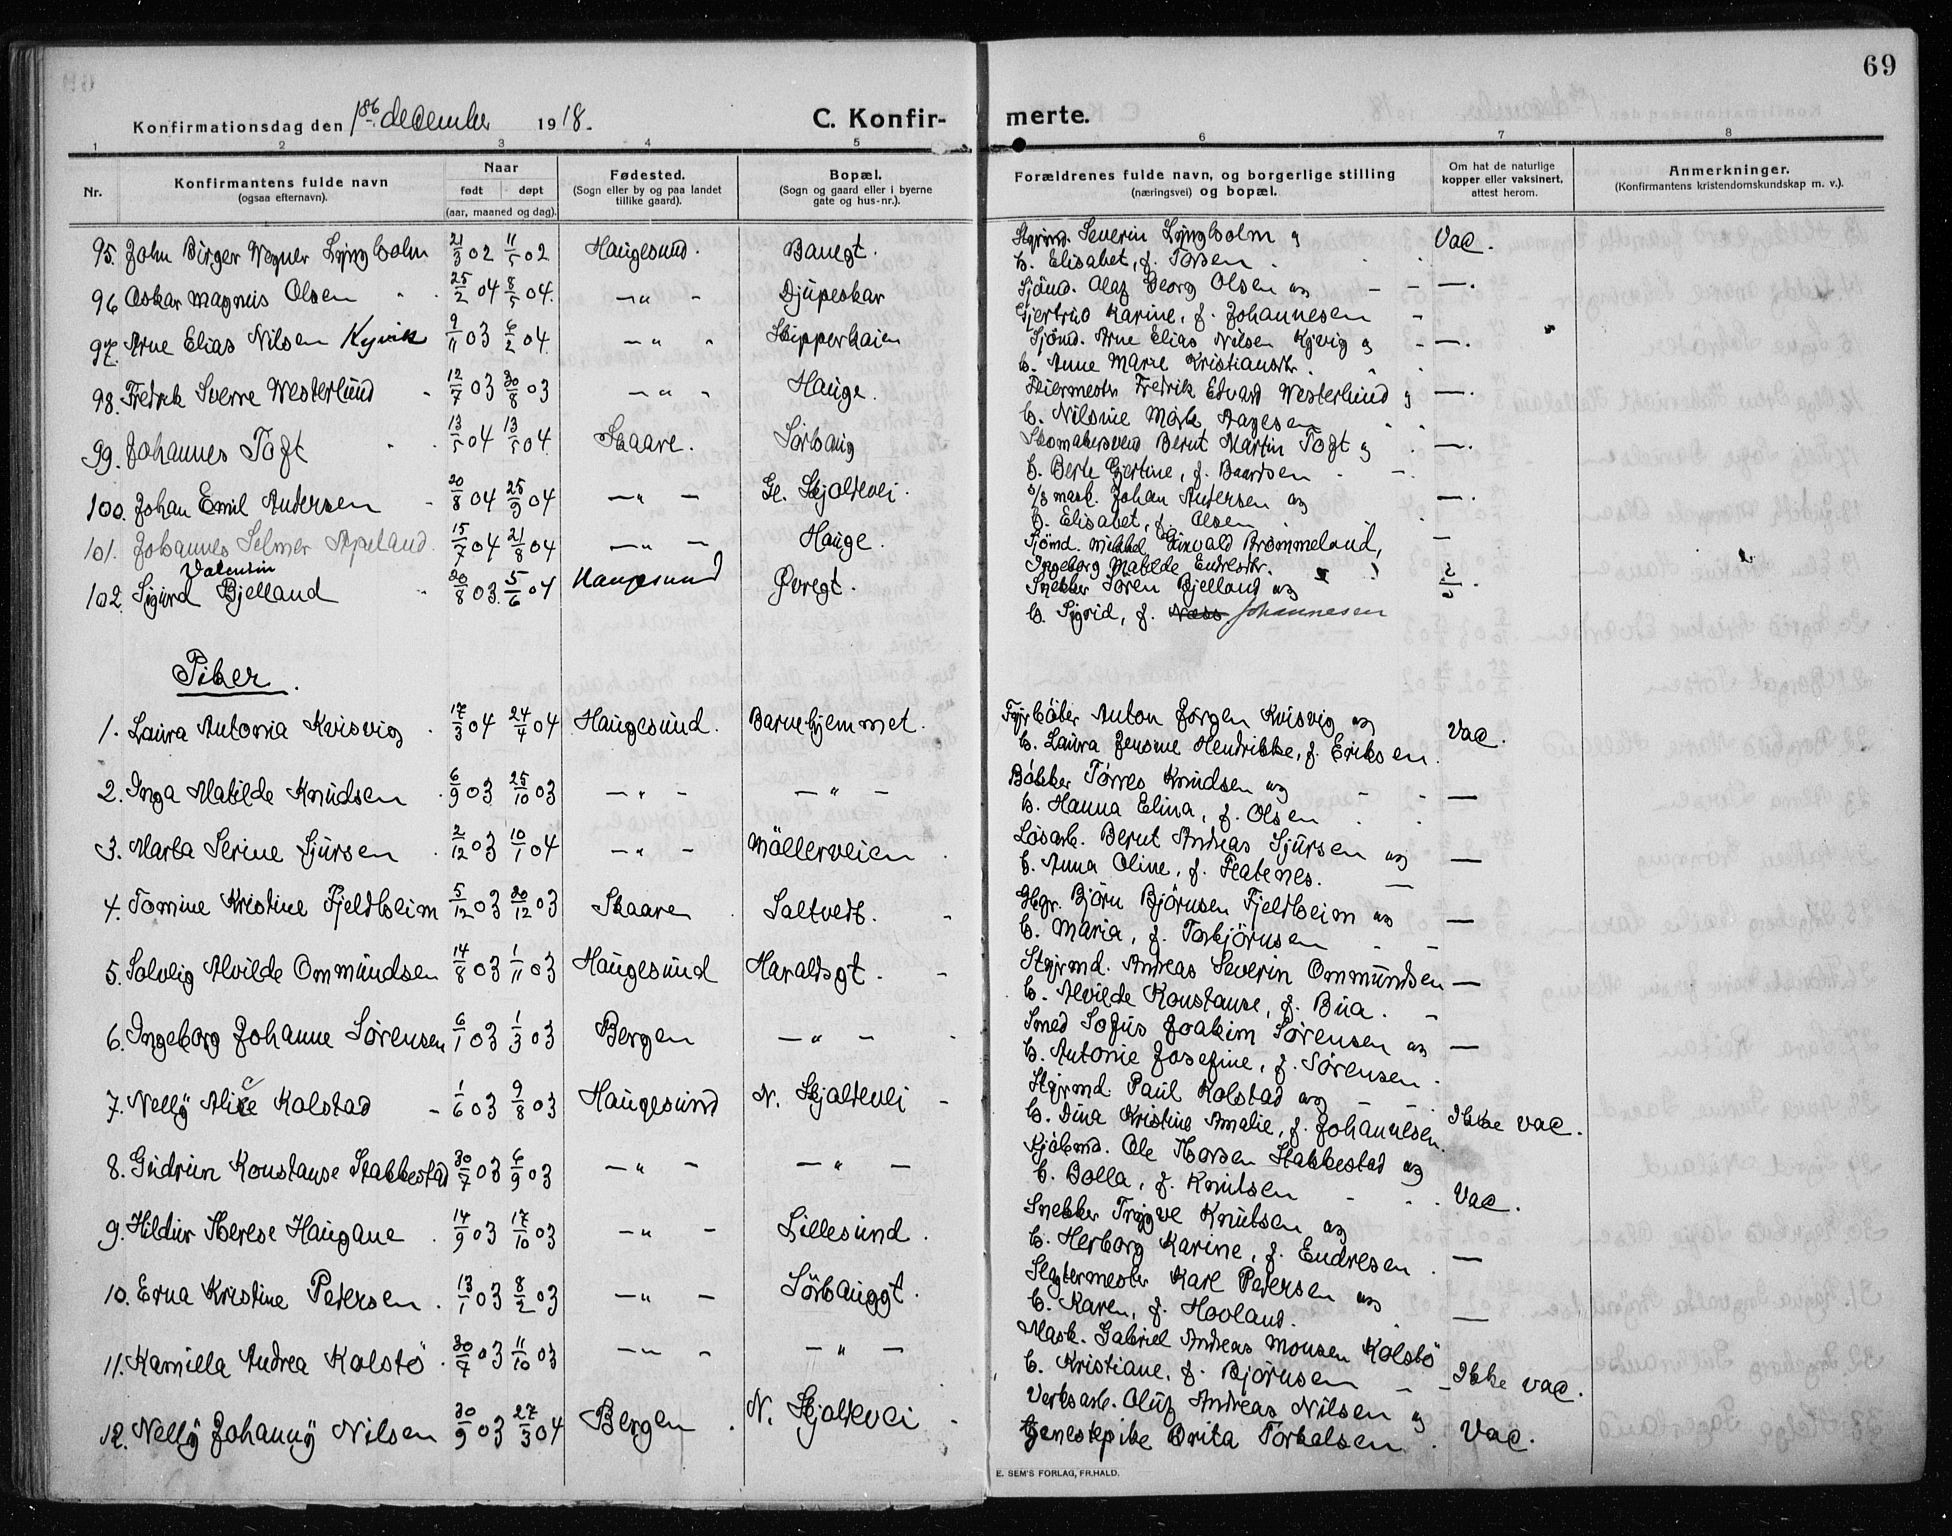 69
Konfirmationsdag den 1ste december 1918.
C. Konfirmerte.
1 2 3 4 5 6 7 8
Nr.
Konfirmantens fulde navn (ogsaa efternavn).
Naar født døpt (aar, maaned og dag).
Fødested. (Sogn eller by og paa landet tillike gaard).
Bopæl. (Sogn og gaard eller i byerne gate og hus-nr.).
Forældrenes fulde navn, og borgerlige stilling (næringsvei) og bopæl.
Om hat de naturlige kopper eller vaksinert, attest herom.
Anmerkninger. (Konfirmantens kristendomskundskap m. v.).
95. John Birger Wegner Lyngholm 21/3 02 11/5 02 Haugesund. Banegt. Styrmd. Severin Lyngholm og Vac.
h. Elisabet, f. Torsen
96 Oskar Magnus Olsen 25/2 04 8/5 04. — " — Djupeskar Sjömd. Olaf Georg Olsen og — — —.
Gjertrud Karine, f. Johannesen
97. Arne Elias Nilsen Kyvik 9/11 03 6/2 04. — " — Skipperhaien Sjömd. Arne Elias Nilsen Kyvig og — —.
h. Anne Marie Kristiansdtr.
98. Fredrik Sverre Westerlund 12/7 03 30/8 03 — " — Hauge. Feiermestr. Fredrik Edvard Westerlund og —.
h. Nilsine Marie Aagesen
99. Johannes Toft 13/5 04 13/5 04. Skaare. Sörhaug Skomakersvend Bernt Martin Toft og —.
h. Berte Gjertine, f. Baardsen
100. Johan Emil Andersen 20/8 04 25/9 04 — " — Gl. Skjoldevei. S/S mask. Johan Andersen og —.
h. Elisabet, f. Olsen
101. Johannes Selmer Apeland. 15/7 04 21/8 04 — " — Hauge. Sjömd. Mikkel Einvald Brommeland, —
Ingeborg Matilde Endresdtr.
Valentin
102. Sigurd Bjelland 20/8 03. 5/6 04 Haugesund Øvregt. Snekker Sören Bjelland og
h. Sigrid, f. Næss. Johannesen
Piker.
1. Laura Antonia Kvisvig 17/3 04 24/4 04 Haugesund. Barnehjemmet. Fyrböter Anton Jörgen Kvisvig og Vac.
h. Laura Jensine Hendrikke, f. Eriksen.
2. Inga Matilde Knudsen 6/9 03 25/10 03 — " — — " — Bökker Törres Knudsen og — — —
h. Hanna Elina, f. Olsen
3. Marta Serine Sjursen 2/12 03 10/1 04 — " — Möllerveien. Lösarb. Bernt Andreas Sjursen og —
h. Anna Oline, f. Flatenes. —
4. Tomine Kristine Fjeldheim 5/12 03 20/12 03 Skaare. Saltvedt. Gbr. Björn Björnsen Fjeldheim og —
h. Maria, f. Torbjörnsen
5. Solveig Alvilde Ommundsen 14/8 03 1/11 03 Haugesund Haraldsgt. Styrmd. Andreas Severin Ommundsen —
h. Alvilde Konstanse, f. Bua.
6. Ingeborg Johanne Sörensen 6/1 03 1/3 03 Bergen — " — Smed Sofus Joakim Sörensen og —
h. Antonie Josefine, f. Sörensen.
7. Nelly Alice Kolstad 1/6 03 9/8 03 Haugesund N. Skjoldevei Styrmd. Paul Kolstad og
h. Dina Kristine Amalie, f. Johannesen. Ikke vac.
8. Gudrun Konstanse Stakkestad 30/7 03 6/9 03 — " — — " — Kjöbmd. Ole Thorsen Stakkestad og
h. Bolla, f. Knutsen Vac.
9. Hildur Therese Haugane 14/9 03 17/10 03 — " — Lillesund. Snekker Trygve Knutsen og
h. Herborg Karine, f. Endresen. —
10. Erna Kristine Petersen. 13/1 03 8/2 03 — " — Sörhauggt. Slagtermester Karl Petersen og
h. Karen, f. Hovland. —
11. Kamilla Andrea Kolstö 30/7 03 11/10 03 — " — — " — Mask. Gabriel Andreas Monsen Kolstö
h. Kristiane, f. Björnsen — — Ikke vac.
12. Nelly Johanny Nilsen 30/9 03 27/3 04 Bergen. N. Skjoldevei Verksarb. Oluf Andreas Nilsen og
tjenestepike Brita Torkelsen. Vac.
E. SEM'S FORLAG, FR.HALD.